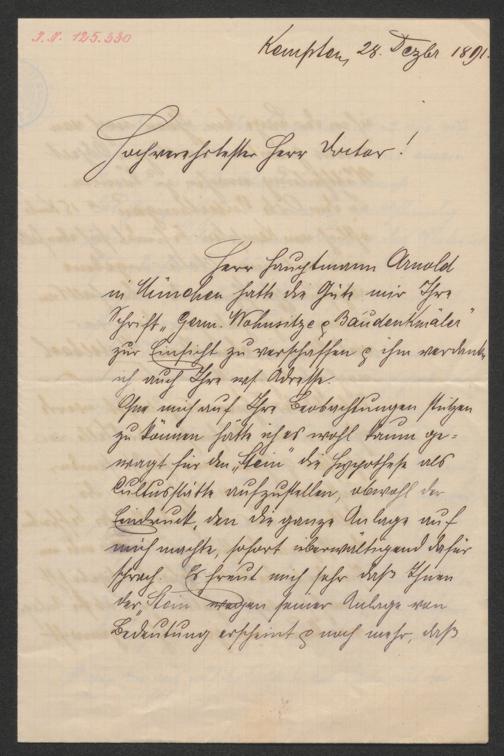 J.N. 125.330
Kempten, 28. Dezbr 1891.
Hochverehrtester Herr Doctor!
Herr Hauptmann Arnold
in München hatte die Güte mir Ihre
Schrift „Germ. Wohnsitze & Baudenkmäler"
zur Einsicht zu verschaffen & ihm verdanke
ich auch Ihre wt Adresse.
Ohne mich auf Ihre Beobachtungen stützen
zu können hätte ich es wohl kaum ge-
wagt für den „Stein" die Hypothese als
Cultusstätte aufzustellen, obwohl der
Eindruck, den die ganze Anlage auf
mich machte, sofort überwältigend dafür
sprach. Es freut mich sehr daß Ihnen
der „Stein" wegen seiner Anlage von
Bedeutung erscheint & noch mehr, daß